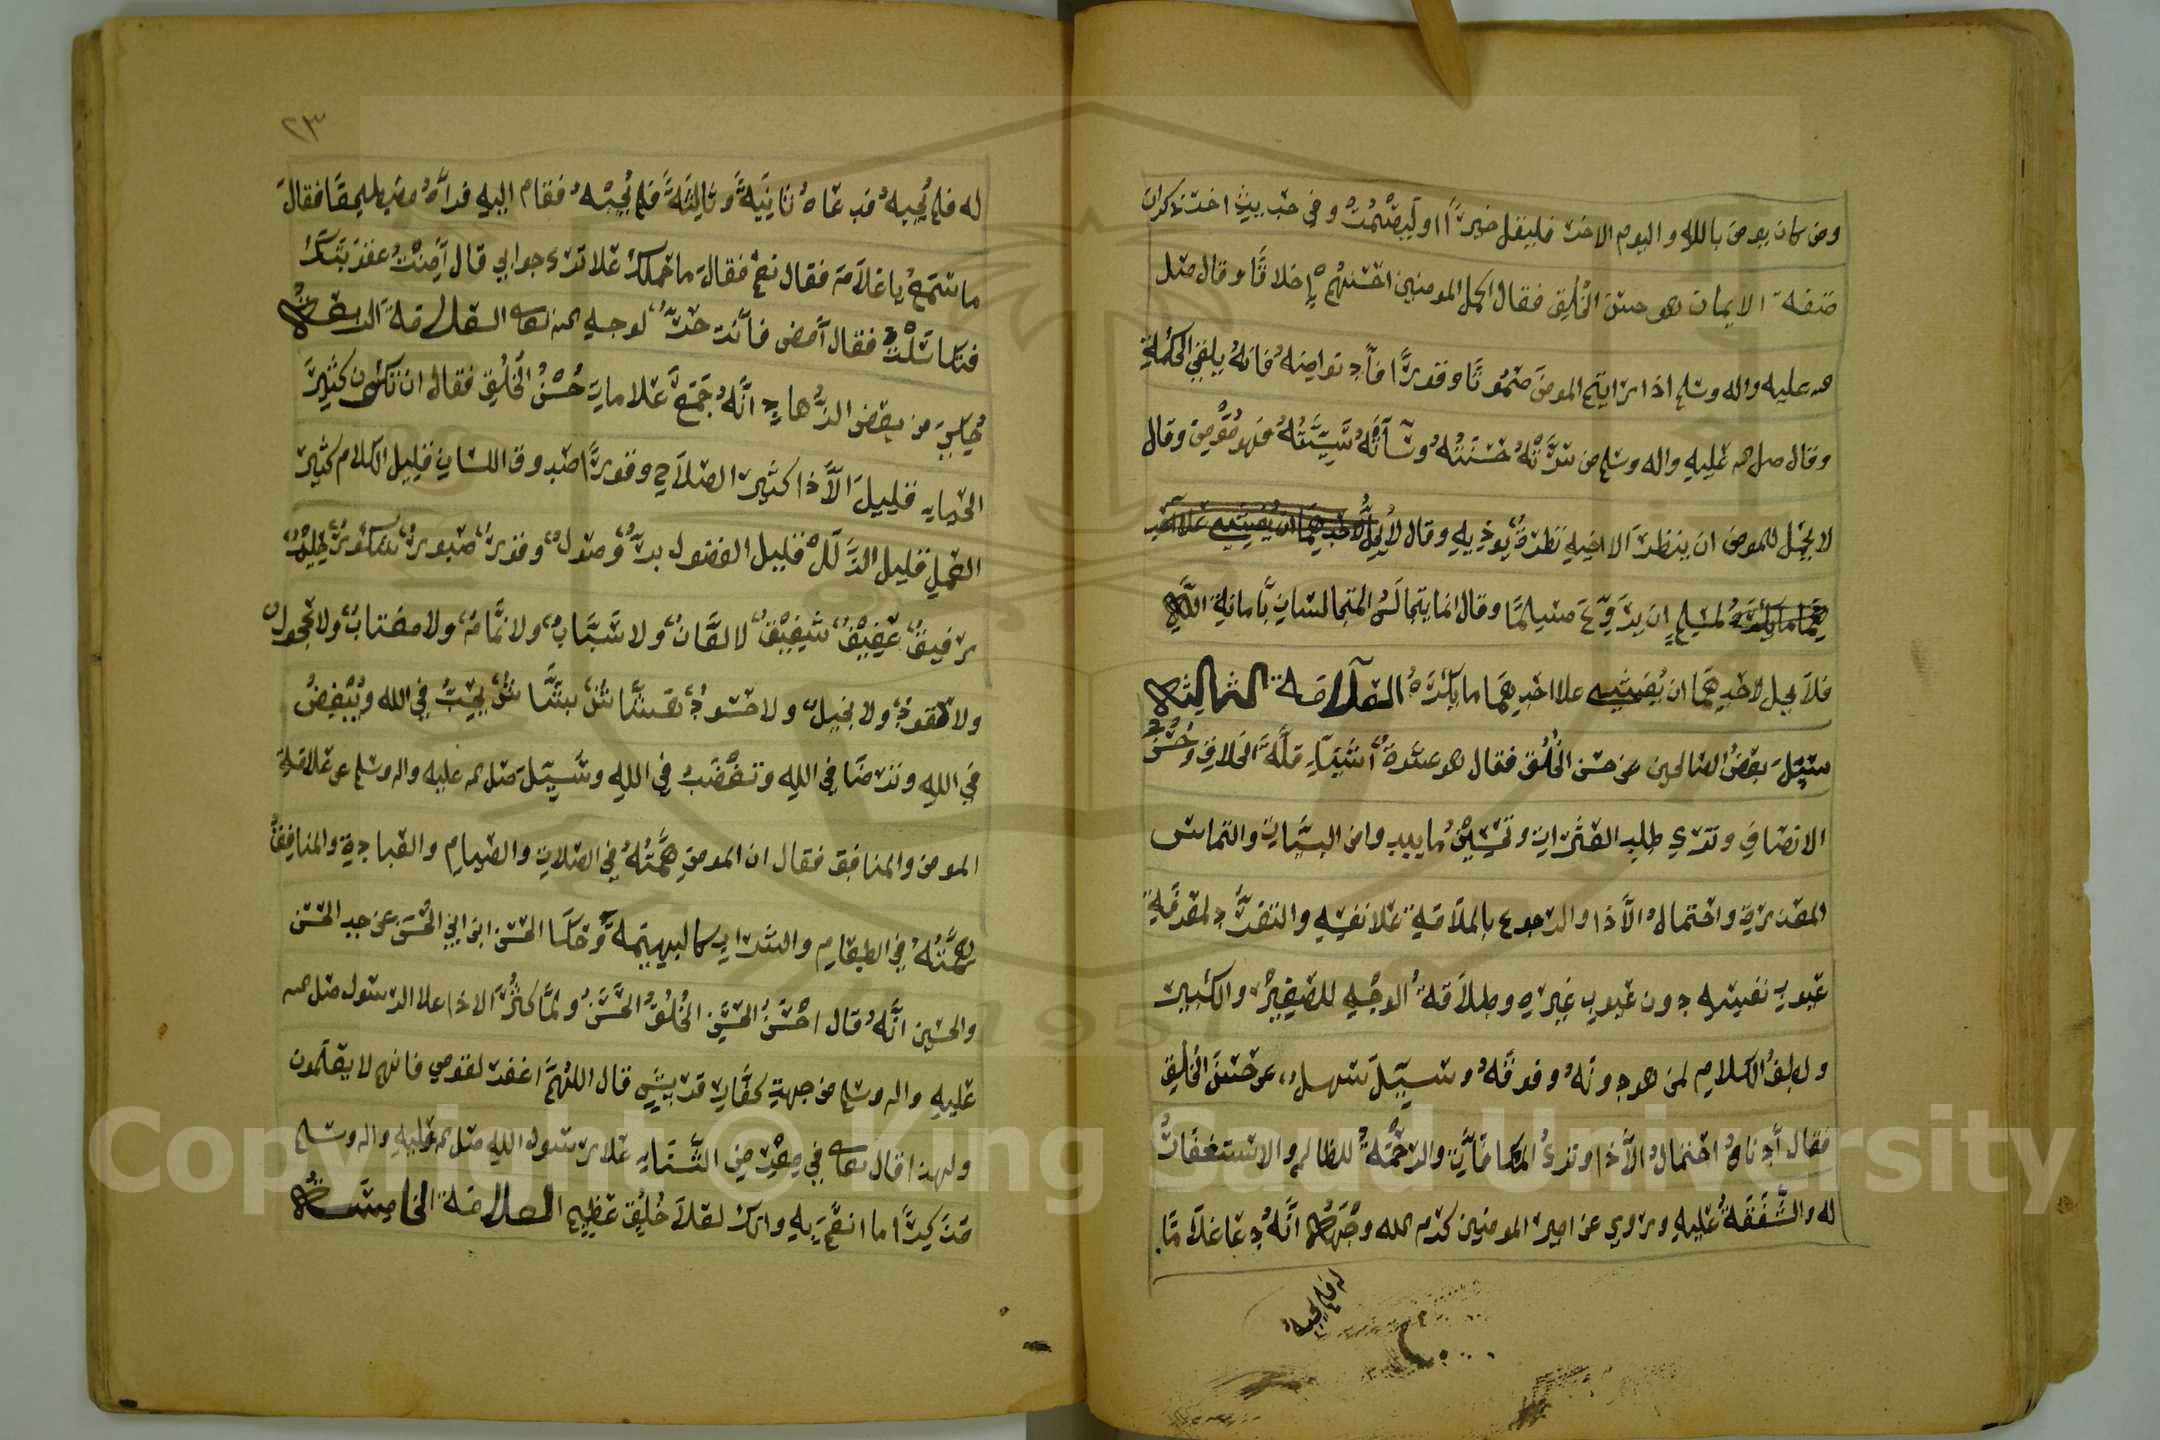 ومن كان يومن بالله واليوم الاخر فليقل خيرًا او ليصْمُتْ وفي حديث اخر ذكر ان
صفة الايمان هو حسن الخُلُق فقال اكمل المومنين احْسَنُهُمْ إخلاقًا وقال صلى
الله عليه واله وسلم اذا رايتم المومن صَمُوتًا وقورًا فأدنوا منه فانه يلقي الحكمة
وقال صلى الله عليه واله وسلم من سَرَّتْهُ حَسَنَتُهُ وسآئتهُ سَيِّئَتُهُ فهو مُوْمِن وقال
لا يحِل للمومن ان ينظر الا اخيه نظرة يوذيه وقال لا يحل
لمسلم ان يروّع مسلمًا وقال انما يتجالس المتجالسان بأمانة الله
فلا يحل لاحدهما ان يفشي علا احدهما ما يكرهُ العلامة الثالثة
سئِلَ بعضُ الصالحين عن حسن الخُلُق فقال هو عشرة أشياء قلّة الخلاف وحُسْنُ
الانصاف وترك طلب العثرات وتحسين ما يبدوا من السيات والتماس
المعذرة واحتمالُ الأذا والرجوع بالملامة علا نفسه والتفرّد لمعرفة
عيوب نفسه دون عيوب غيره وطلاقةُ الوجه للصغير والكبير
ولطفُ الكلام لمن هو دونَهُ وفوقَهُ وسيِلَ سهل عن حسن الخُلُق
فقال أدناهُ احتمالُ الأذا وتركُ المكافأة والرحْمَةُ للظالم والاستغفارُ
له والشَّفَقَةُ عليه وروي عن امير المومنين كرم الله وجهه انَّهُ دعا غلامًا
له فلم يجبهُ
٢٣
له فلم يُجِبهُ فدعاهُ ثانيةً وثالثةً فلم يُجِبْهُ فقام اليه فرآهُ مضطجعًا فقال
ما تسمع يا غلام فقال نعم فقال ما حملك علا ترك جوابي قال أمِنْتُ عقوبتك
فتكاسَلْتُ فقال أمض فأنت حرٌّ لوجه الله تعالى العلامة الرابعة
حُكِيَ من بعض الزُّهاد انَّهُ جمع علامات حُسْنُ الخُلُق فقال ان تكون كثيرَ
الحياء قليلَ الأذا كثير الصلاح وقورًا صدوق اللسان قليل الكلام كثير
العمل قليل الزَّلَل قليل الفضول برٌّ وصولٌ وقورٌ صبورٌ شكورٌ حليمٌ
رفيقٌ عفيفٌ شفيقٌ لا لعَّانٌ ولا سَبَّابٌ ولا نمَّامٌ ولا مغتابٌ ولا عجولٌ
ولا حقودٌ ولا بخيلٌ ولا حسودٌ هشاشٌ بشَّاشٌ يُحِبُ في الله ويُبْغِضُ
في الله وترضا في الله وتغْضَبُ في الله وسُيِلَ صلى الله عليه واله وسلم عن علامة
المومن والمنافق فقال ان المومن هِمَّتُهُ في الصلاة والصيام والعبادة والمنافقُ
هِمَّتُهُ في الطعام والشراب كالبهيمة وحكا الحسن ابن ابي الحُسَن عن جد الحسن
والحسين انَّهُ قال احْسَنُ الحَسَنِ الخُلُقُ الحَسَنُ ولمَّا كثُرَ الاذا علا الرسول صلى الله
عليه واله وسلم من جهة كفّار قريش قال اللهُمَّ اغفر لقومي فانهم لا يعلمون
ولهذا قال تعالى في معرض الثَّناء علا رسول الله صلى الله عليه واله وسلم
وانك لعلا خُلُقٍ عظيم العلامة الخامسة